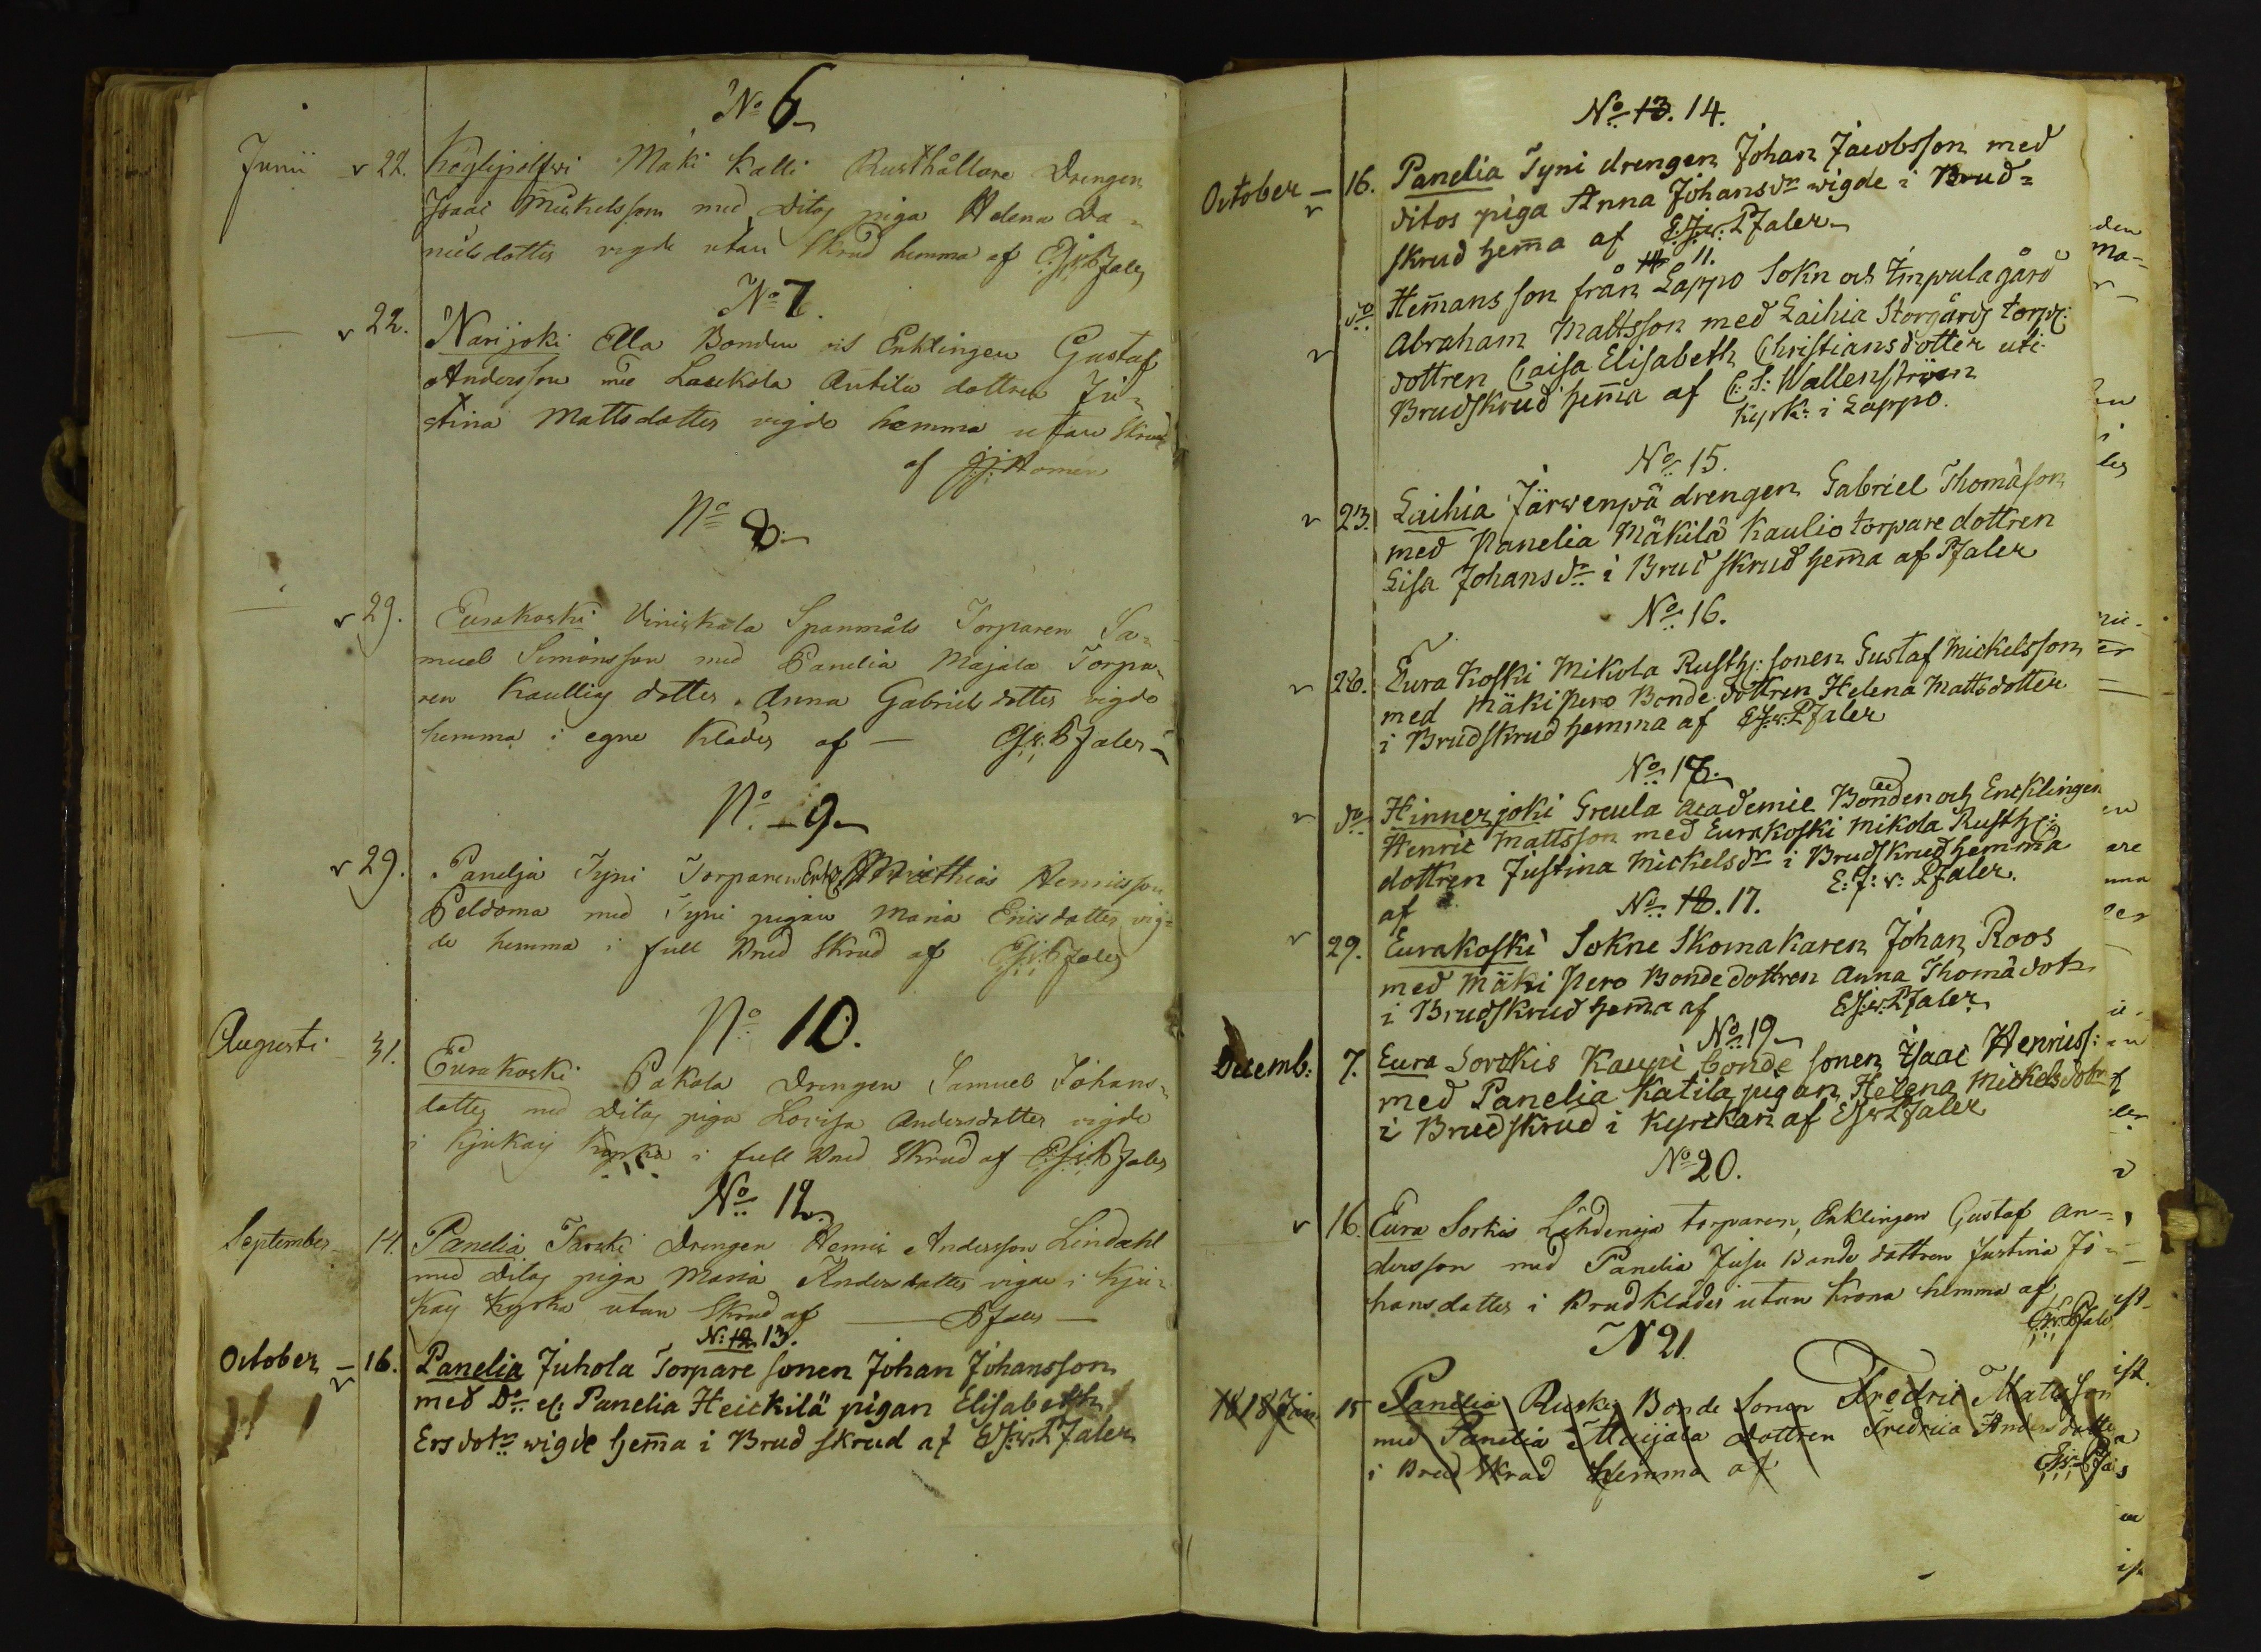 No 6
Junii 22. Köylipolfvi Mäki Kalli Rusthållare Drengen
Isaac Mickelsson med Ditos piga Helena Da=
nielsdotter vigde utan skrud hemma af
No 7.
22. Narijoki Ella Bonden Enklingen Gustaf
Andersson med Antila dottren Ju=
stina Mattsdotter vigde hemma utan skrud
af J:J: Homén
No 8.
29. Eurakoski Spanmåls Torparen Sa=
muel Simonsson med Panelia Majala Torpa=
ren dotter Anna Gabrielsdotter vigde
hemma i egne kläder af —
No. 9
29. Panelja Tyni Torparen Enkl: Matthias Henricsson
Peldoma med Tyni pigan Maria Ericsdotter vig=
de hemma i full Brud skrud af
No 10.
Augusti 31. Eurakoski Pakola Drengen Samuel Johans=
dotter med Ditos piga Lovisa Andersdotter vigde
i Kjukais Kyrka i full Brud skrud af
No 12.
September 14. Panelia Drengen Henric Andersson Lindahl
med Ditos piga Maria Andersdotter vigde i Kju=
kais Kyrka utan skrud af
N: 12 13.
October — 16. Panelia Juhola Torpare sonen Johan Johansson
med Do Panelia Heickilä pigan Elisabeth
Ersdotr wigde hem̄a i Brud skrud af E:J:v: Pfaler
No 13. 14.
October — 16. Panelia Tyni drengen Johan Jacobsson med
ditos piga Anna Johansdr wigde i Brud=
skrud hem̄a af E:J:v: Pfaler
11.
do Hem̄ans son från Lappo Sokn och Impula gård
Abraham Mattsson med Laihia Storgårds torp:
dottren Caisa Elisabeth Christiansdotter uti
Brudskrud hem̄a af C: S: Wallenström
Kyrk: i Lappo.
No 15.
23. Laihia Järwenpä drengen Gabriel Thomasson
med Panelia Mäkilä Kaulio torpare dottren
Lisa Johansdr i Brud skrud hem̄a af Pfaler
No 16.
26. Eura Koski Mikola Rusth: sonen Gustaf Mickelsson
med Mäkipero Bonde dottren Helena Mattsdotter
i Brudskrud hemma af E:J:v: Pfaler
No 18.
do Hinnerjoki Greula academie Bonden och Encklingen
Henric Mattsson med Eurakoski Mikola Rusth:
dottren Justina Mickelsdr i Brudskrud hemma
af E: J: v: Pfaler.
No 18. 17.
29. Eurakoski Sokne Skomakaren Johan Roos
med Mäki Pero Bondedottren Anna Thomädotr
i Brudskrud hem̄a af E:J:v: Pfaler
No 19
Decemb: 7. Eura Sorckis Kauni bonde sonen Isaac Henricss:
med Panelia Katila pigan Helena Mickelsdotr
i Brudskrud i Kyrckan af E:J:v: Pfaler
No 20.
16. Eura Sorkis torparen, Enklingen Gustaf An=
dersson med Panelia Juju Bonde dottren Justina Jo=
hansdotter i Brudkläder utan Krona hemma af
N 21.
1818 Jan. 15 Panelia Rusky Bonde Sonen Fredric Mattsson
med Panelia Maijala Dottren Fredrica Andersdotter
i Brud skrud hemma af